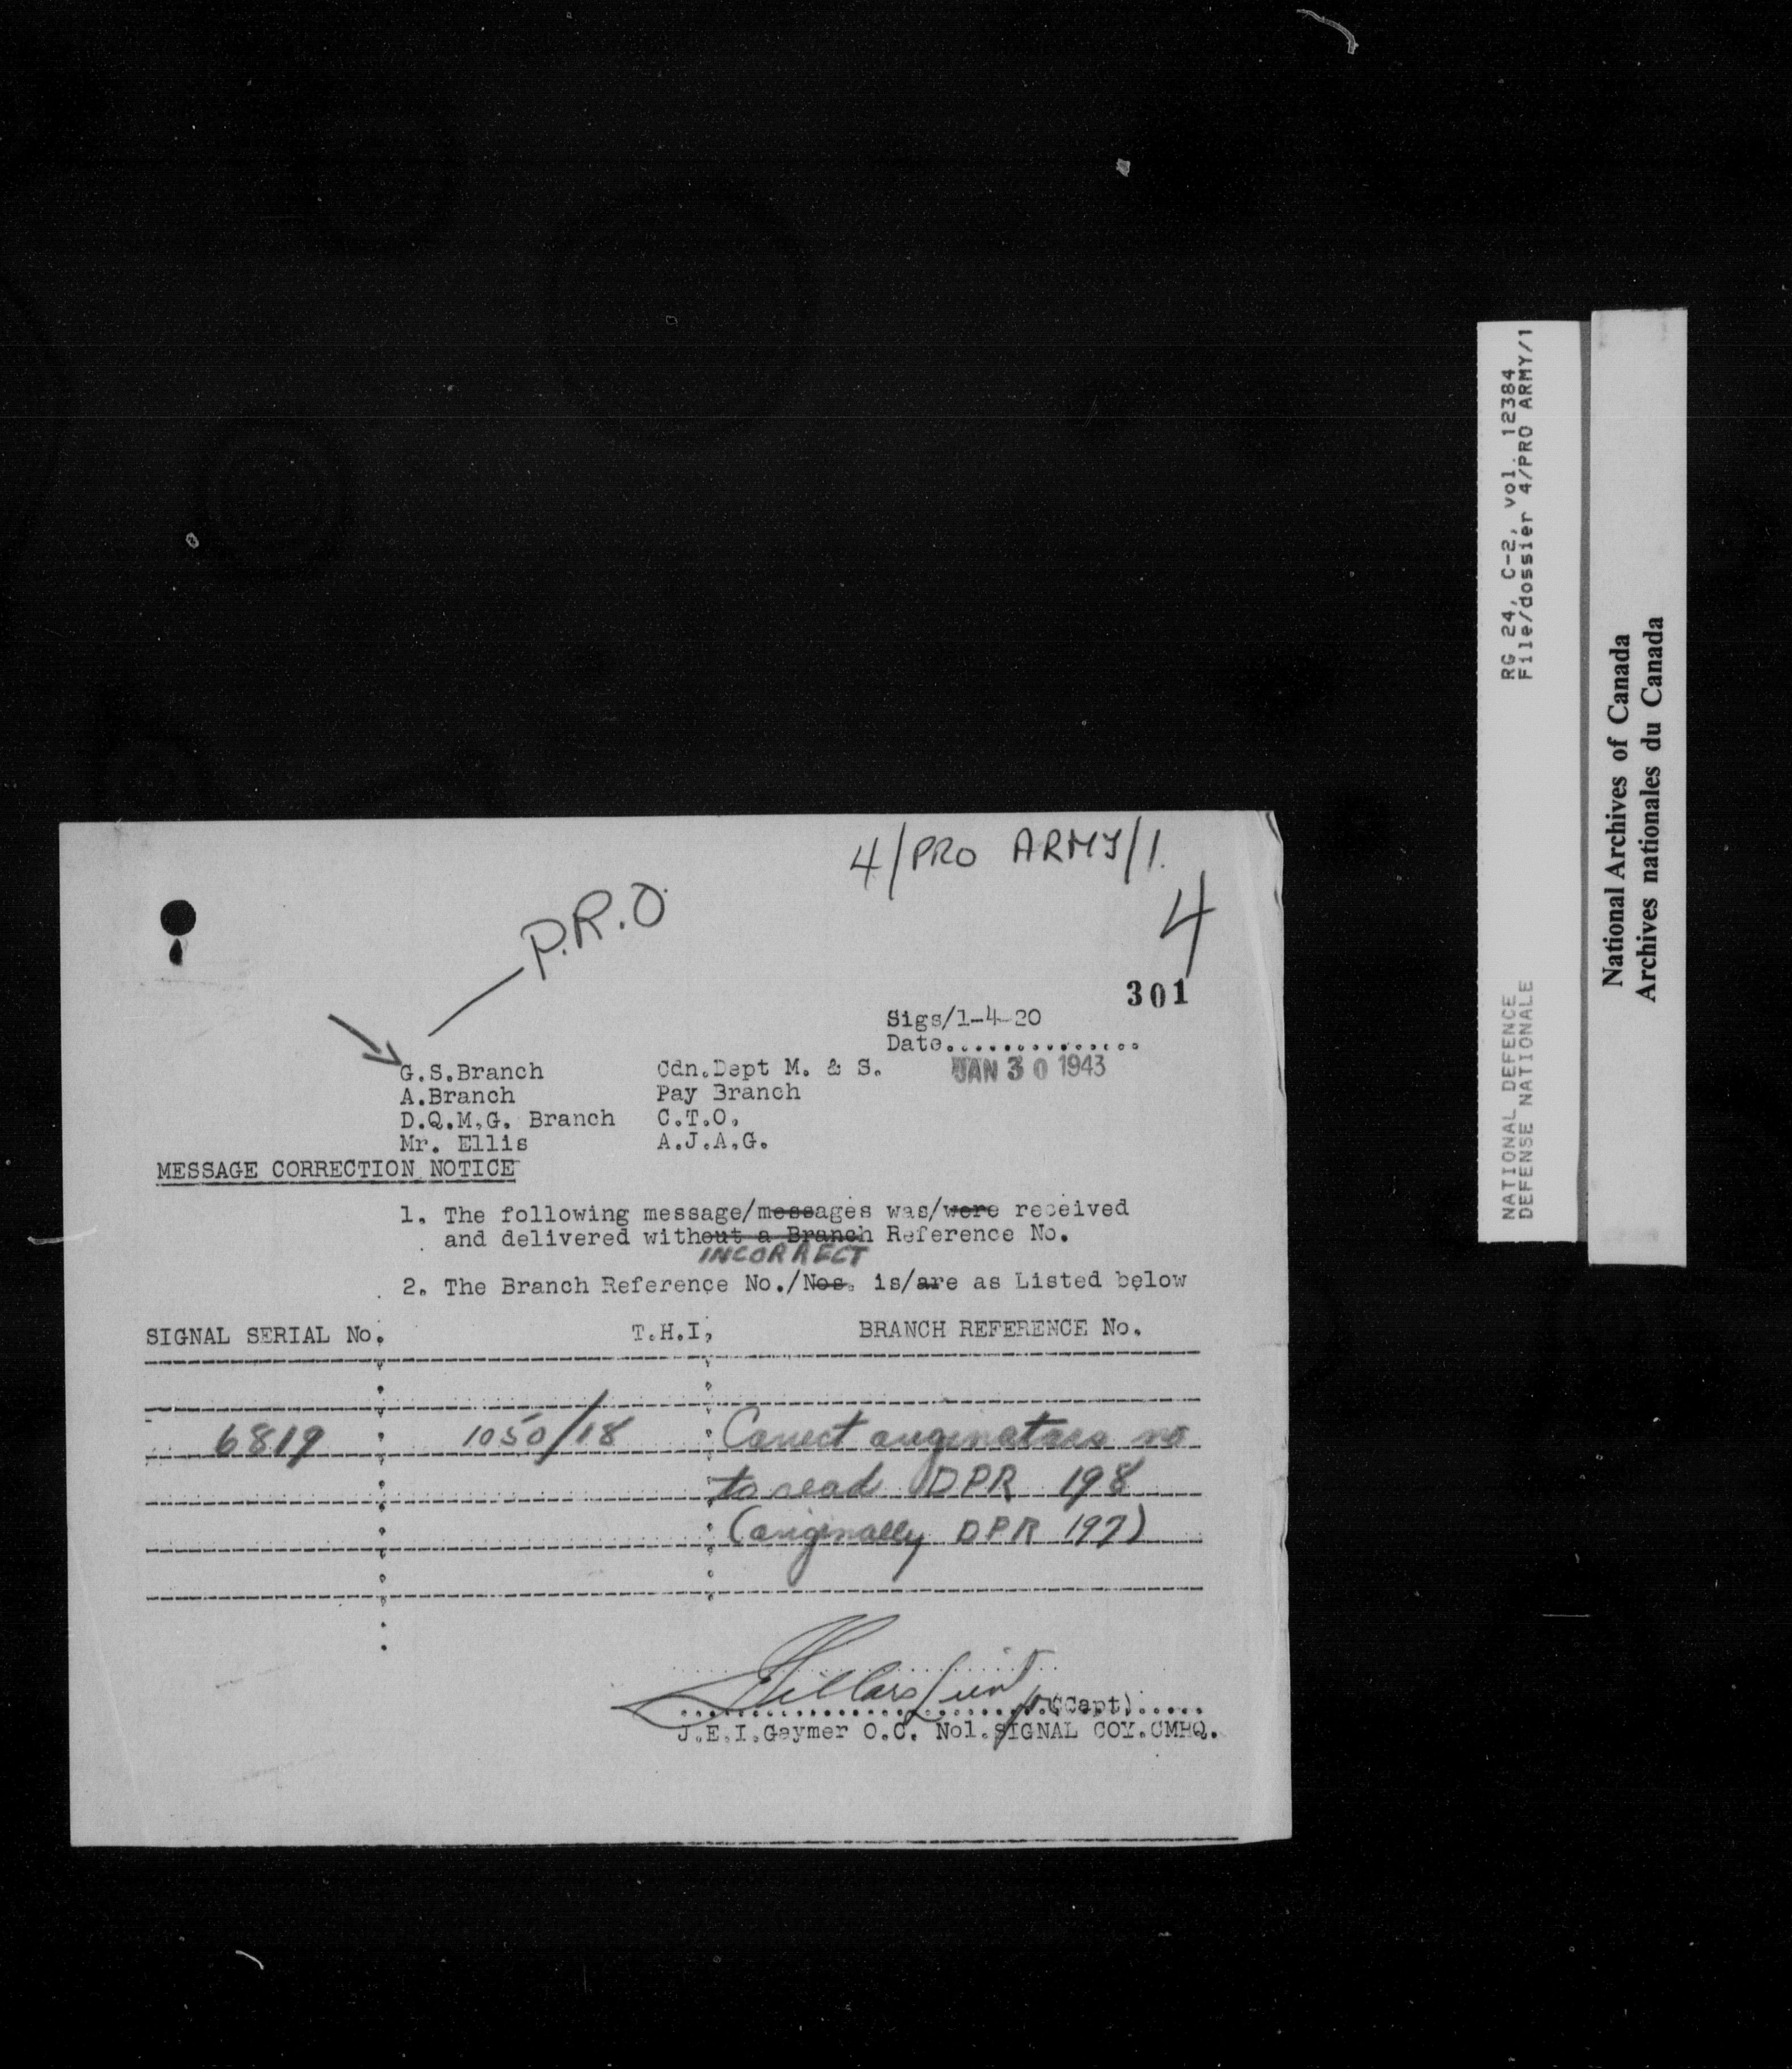 4/PRO ARMY/1.
P.R.O
4
301
Sigs/1-4-20
Date...............
JAN 30 1943
G.S.Branch Cdn.Dept M. & S.
A.Branch Pay Branch
D.Q.M.G. Branch C.T.O.
Mr. Ellis A.J.A.G.
MESSAGE CORRECTION NOTICE
1. The following message/messages was/were received
and delivered without a Branch Reference No.
INCORRECT
2. The Branch Reference No./Nos. is/are as Listed below
SIGNAL SERIAL No. T.H.I. BRANCH REFERENCE No.
6819 1050/18 Correct originators no
to read DPR 198
(originally DPR 197)
(Capt).....
J.E.I.Gaymer O.C. No1.SIGNAL COY.CMHQ.
RG 24, C-2, vol. 12384
File/dossier 4/PRO ARMY/1
NATIONAL DEFENCE
DEFENSE NATIONALE
National Archives of Canada
Archives nationales du Canada